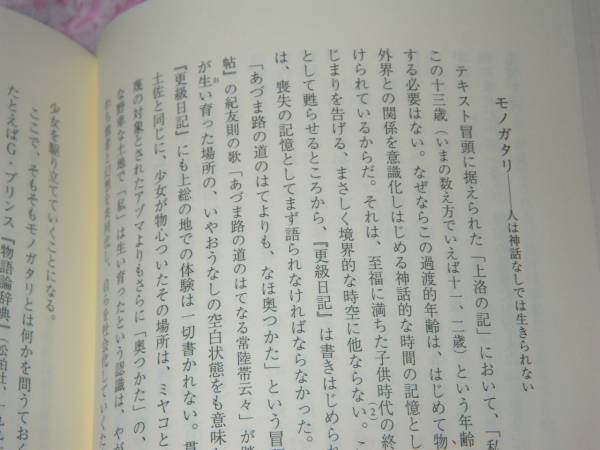 モノガタリ——人は神話なしでは生きられない
テキスト冒頭に据えられた「上洛の記」において、「私
この十三歳（いまの数え方でいえば十一、二歳）という年齢
する必要はない。なぜならこの過渡的年齢は、はじめて物
外界との関係を意識化しはじめる神話的な時間の記憶とし
けられているからだ。それは、至福に満ちた子供時代の終
じまりを告げる、まさしく境界的な時空に他ならない。(2)こ
として甦らせるところから、『更級日記』は書きはじめられ
は、喪失の記憶としてまず語られなければならなかった。
「あづま路の道のはてよりも、なほ奥つかた」という冒
帖』の紀友則の歌「あづま路の道のはてなる常陸帯云々」が
が生い育った場所の、いやおうなしの空白状態をも意味
お
『更級日記』にも上総の地での体験は一切書かれない。
土佐と同じに、少女が心ついたその場所は、ミヤコと
蔑の対象とされたアヅマよりもさらに「奥つかた」の、
な野卑な土地で「私」は生い育ったという認識は、やが
少女を駆り立てていくことになる。
ここで、そもそもモノガタリとは何かを問うておく
たとえばG・プリンス『物語論辞典』（松柏社、